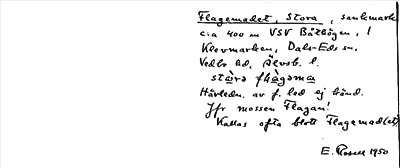 Flagemadet, Stora, sankmark
c:a 400 m VSV Båthögen, i
Klevmarken, Dals-Eds sn,
Vedbo hd, Älvsb. l.
Härledn. av f. led ej känd.
Jfr mossen Flagan!
Kallas ofta blott Flagemad(et)
E. 1950